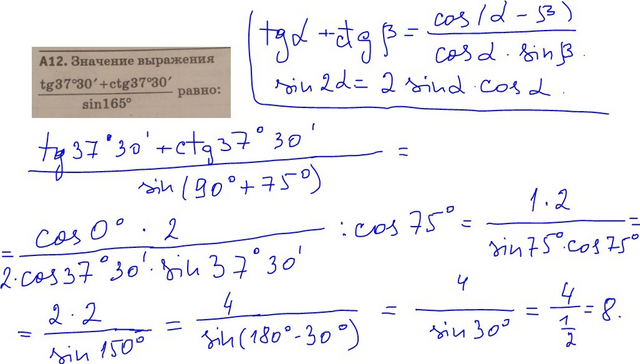 А12. Значение выражения
tg37°30′+ctg37°30′
sin165°
равно:
tgα + ctgβ = cos(α − β)
cosα · sinβ
sin2α = 2 sinα · cosα
tg37°30′ + ctg37°30′ =
sin(90° + 75°)
= cos0° · 2 : cos75° = 1·2 =
2·cos37°30′·sin37°30′ sin75°·cos75°
= 2·2 = 4 = 4 = 4 = 8.
sin150° sin(180°-30°) sin30° 1
2